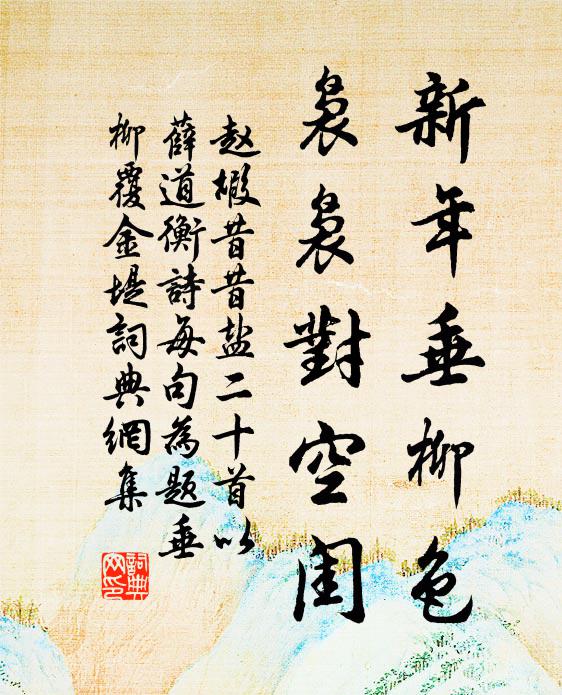 新年垂柳色
袅袅對空闺
赵嘏昔昔盐二十首以
薛道衡詩每句為题垂
柳覆金堤詞典網集
詞典
网印